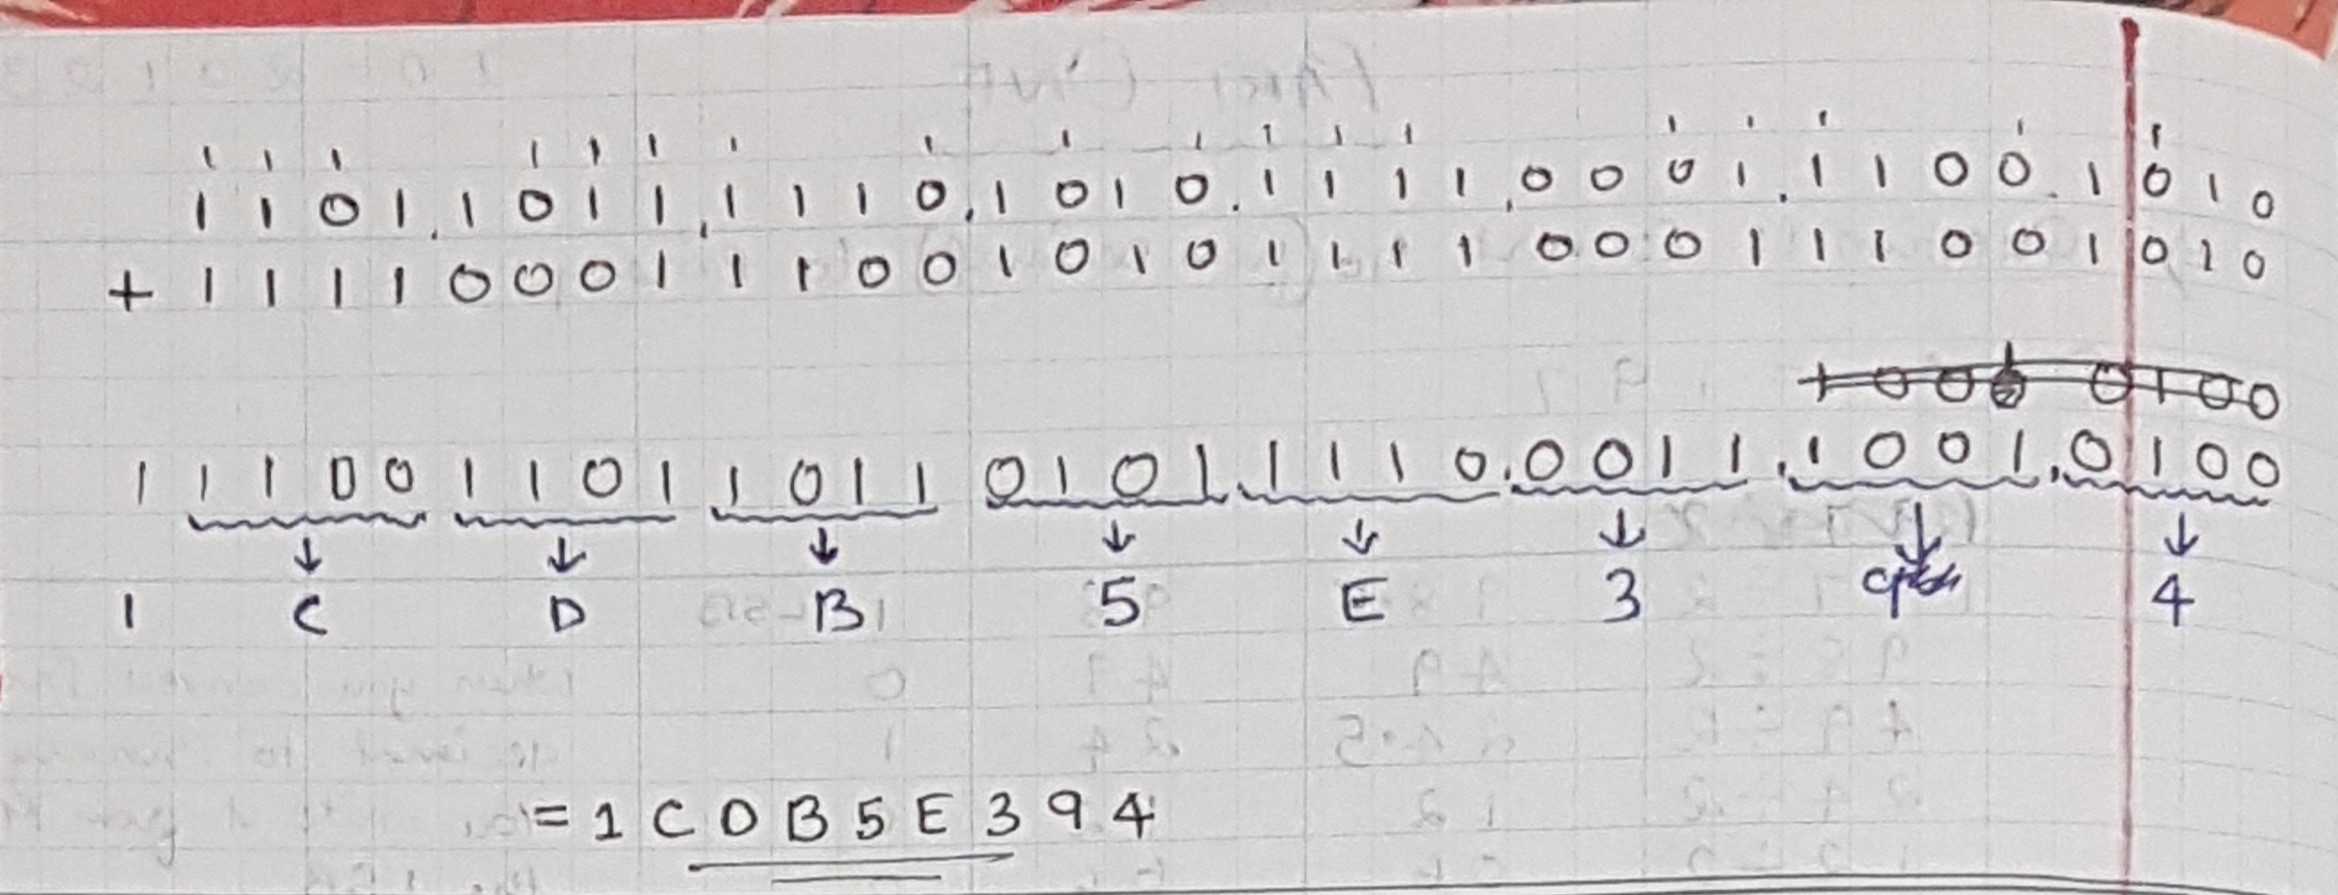 1 1 1 1 1 1 1 1 1 1 1 1 1 1 1 1 1 1
1 1 0 1 . 1 0 1 1 . 1 1 1 0 . 1 0 1 0 . 1 1 1 1 . 0 0 0 1 . 1 1 0 0 . 1 0 1 0
+ 1 1 1 1 0 0 0 1 1 1 0 0 1 0 1 0 1 1 1 1 0 0 0 1 1 1 0 0 1 0 1 0
1 1 1 0 0 1 1 0 1 1 0 1 1 0 1 0 1 1 1 1 0 . 0 0 1 1 . 1 0 0 1 . 0 1 0 0
↓ ↓ ↓ ↓ ↓ ↓ ↓ ↓
1 C D B 5 E 3 9 4
= 1 C D B 5 E 3 9 4